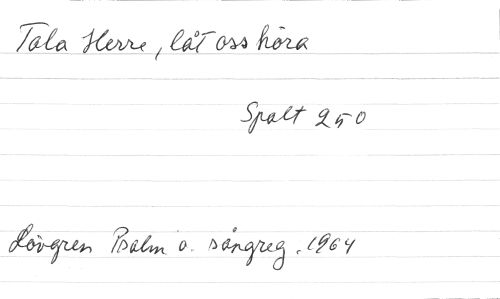 Tala Herre, låt oss höra
Spalt 250
Lövgren Psalm o. sångreg. 1964